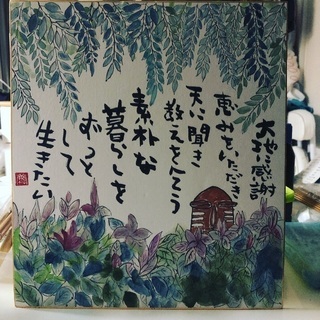 大地に感謝
恵みをいただき
天に聞き
教えをこう
素朴な
暮らしを
ずっと
して
生きたい